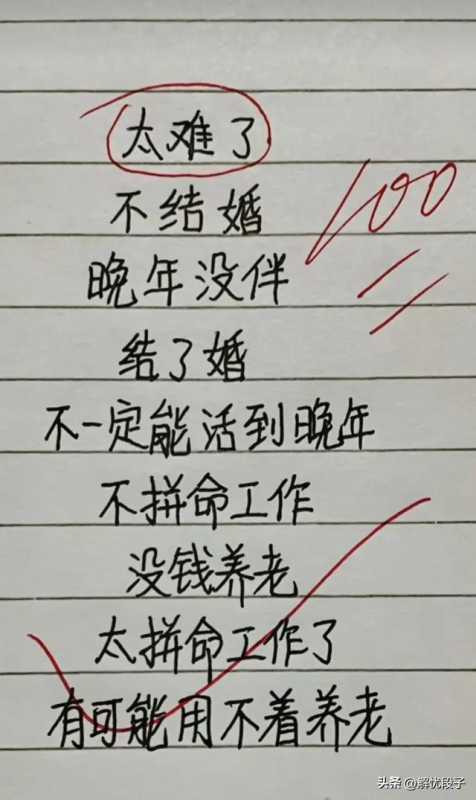 太难了
100
不结婚
晚年没伴
结了婚
不一定能活到晚年
不拼命工作
没钱养老
太拼命工作了
有可能用不着养老
头条 @解忧段子